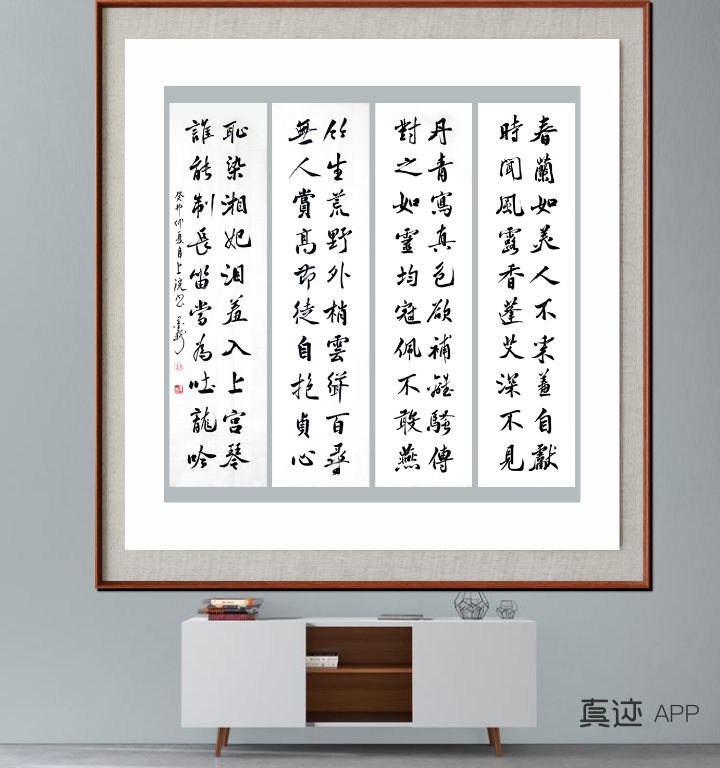 春蘭如美人不采羞自獻
時聞風露香蓬艾深不見
丹青寫真色欲補離騷傳
對之如靈均冠佩不敢燕
竹生荒野外梢雲聳百尋
無人賞高節徒自抱貞心
恥染湘妃泪羞入上宮琴
誰能制長笛當為吐龍吟
癸卯仲夏月上浣
真迹 APP